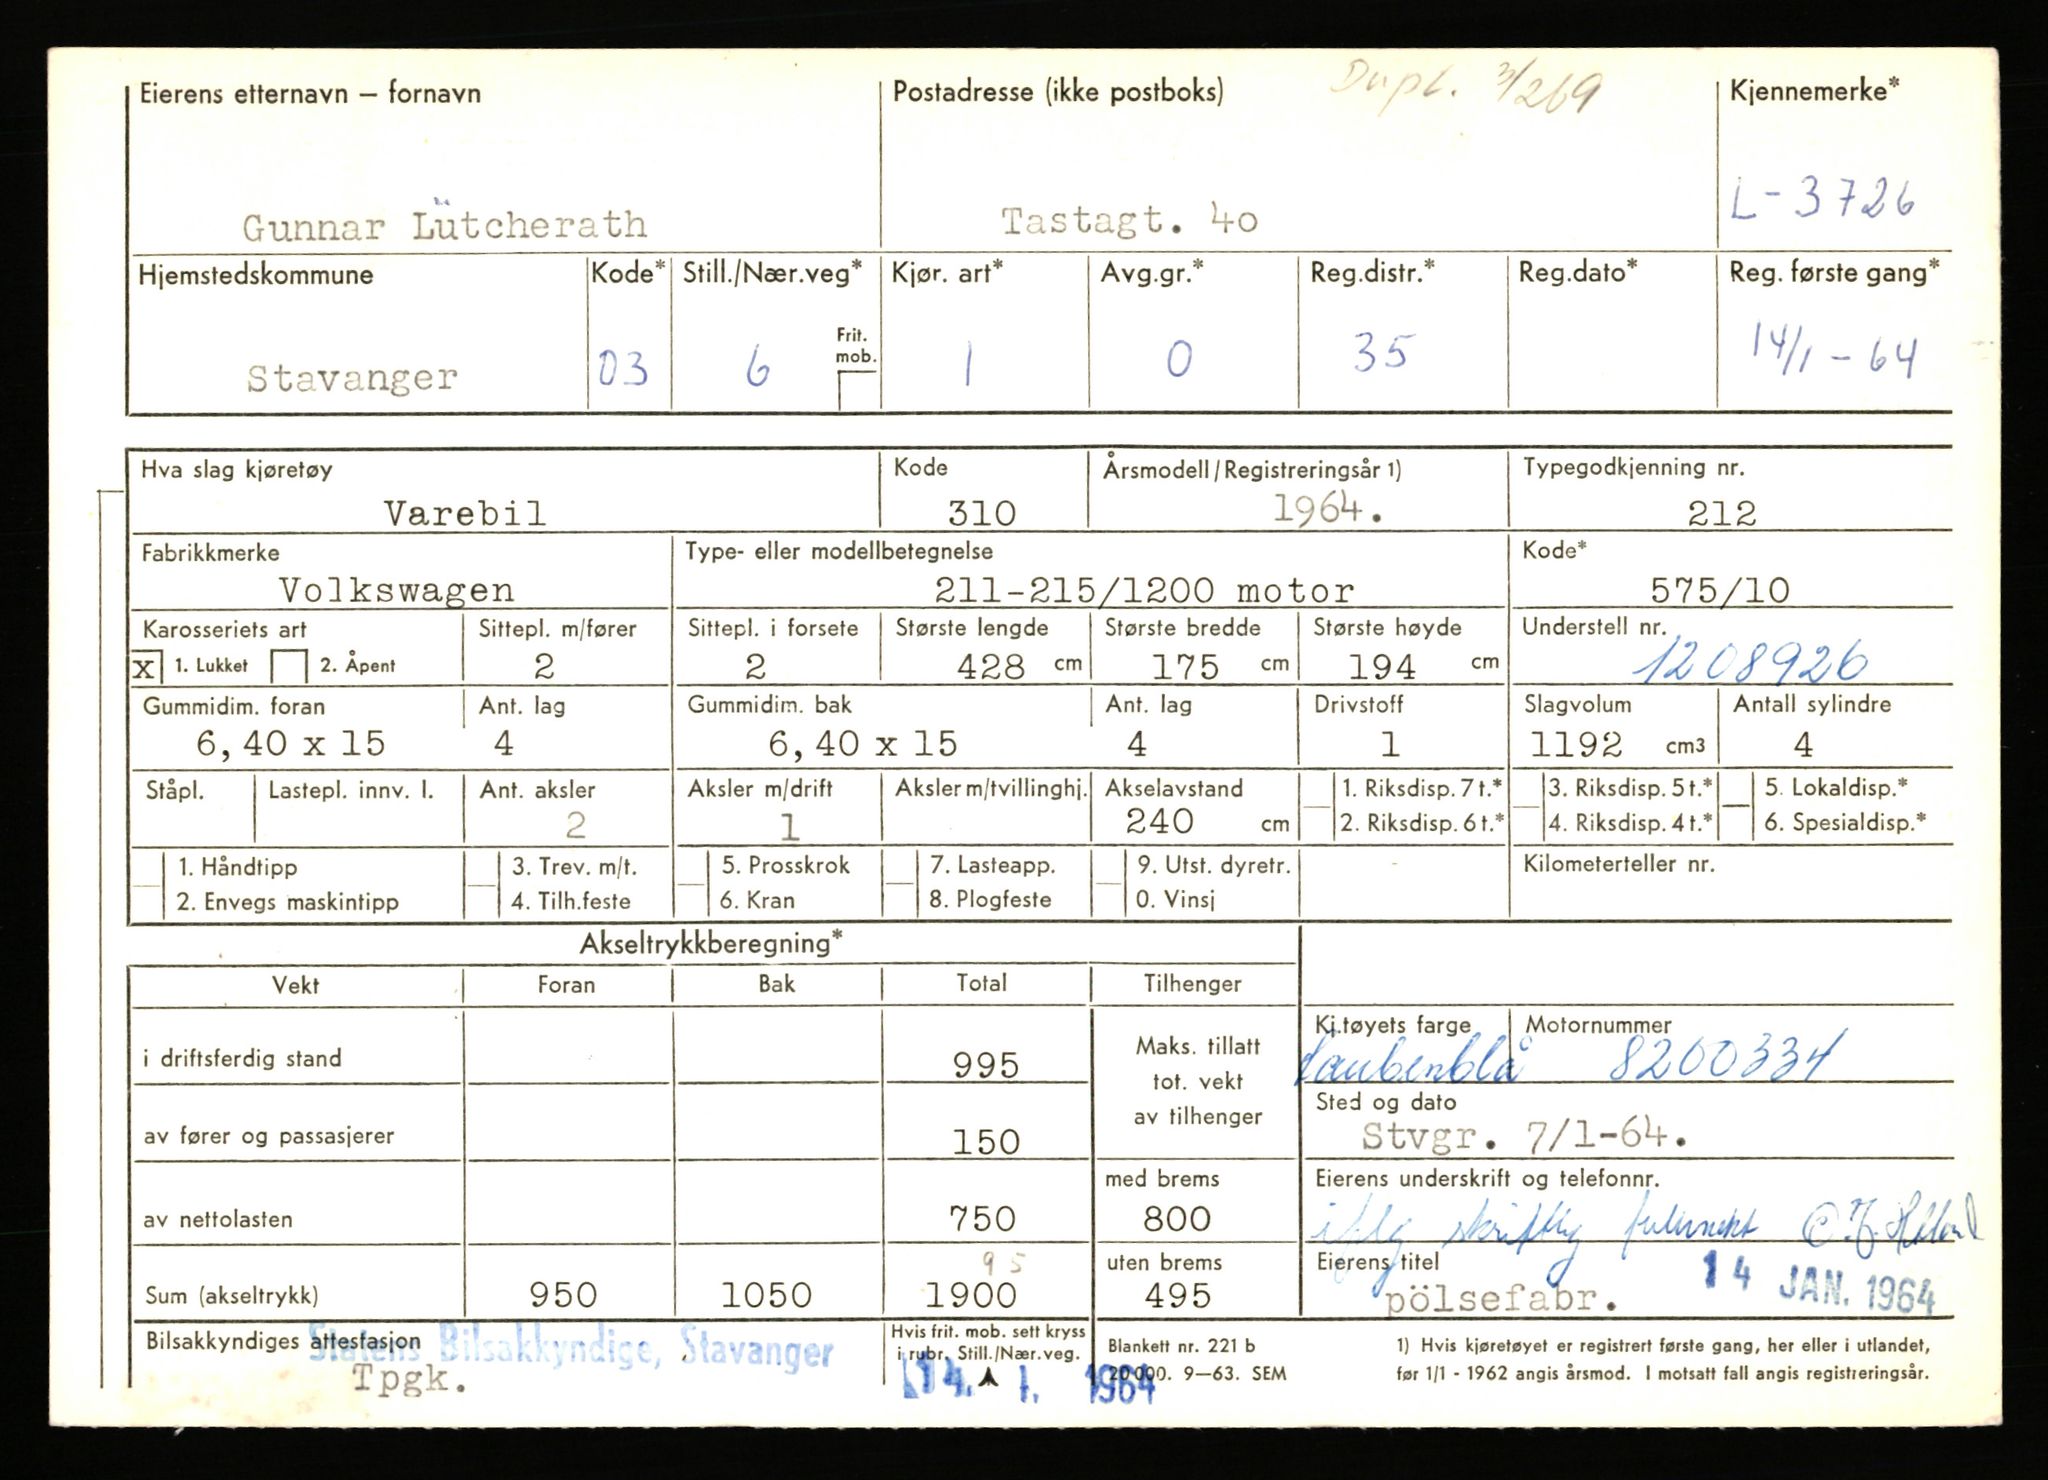 Eierens etternavn – fornavn Postadresse (ikke postboks) Dupl. 3/269 Kjennemerke*
Gunnar Lütcherath Tastagt. 40 L-3726
Hjemstedskommune Kode* Still./Nær.veg* Kjør. art* Avg.gr.* Reg.distr.* Reg.dato* Reg. første gang*
Frit. mob.
Stavanger 03 6 1 0 35 14/1-64
Hva slag kjøretøy Kode Årsmodell/Registreringsår 1) Typegodkjenning nr.
Varebil 310 1964. 212
Fabrikkmerke Type- eller modellbetegnelse Kode*
Volkswagen 211-215/1200 motor 575/10
Karosseriets art Sittepl. m/fører Sittepl. i forsete Største lengde Største bredde Største høyde Understell nr.
x 1. Lukket 2. Åpent 2 2 428 cm 175 cm 194 cm 1208926
Gummidim. foran Ant. lag Gummidim. bak Ant. lag Drivstoff Slagvolum Antall sylindre
6,40 x 15 4 6,40 x 15 4 1 1192 cm3 4
Ståpl. Lastepl. innv. l. Ant. aksler Aksler m/drift Aksler m/tvillinghj. Akselavstand 1. Riksdisp. 7 t.* 3. Riksdisp. 5 t.* 5. Lokaldisp.*
2 1 240 cm 2. Riksdisp. 6 t.* 4. Riksdisp. 4 t.* 6. Spesialdisp.*
1. Håndtipp 3. Trev. m/t. 5. Prosskrok 7. Lasteapp. 9. Utst. dyretr. Kilometerteller nr.
2. Envegs maskintipp 4. Tilh.feste 6. Kran 8. Plogfeste 0. Vinsj
Akseltrykkberegning*
Vekt Foran Bak Total Tilhenger
Kj.tøyets farge Motornummer
i driftsferdig stand 995 Maks. tillatt tot. vekt av tilhenger 8200334
Sted og dato
av fører og passasjerer 150 Stvgr. 7/1-64.
med brems Eierens underskrift og telefonnr.
av nettolasten 750 800 skriftlig
95 uten brems Eierens titel
Sum (akseltrykk) 950 1050 1900 495 pölsefabr. 14 JAN. 1964
Bilsakkyndiges attestasjon Statens Bilsakkyndige, Stavanger Hvis frit. mob. sett kryss i rubr. Still./Nær.veg. Blankett nr. 221 b 1) Hvis kjøretøyet er registrert første gang, her eller i utlandet,
Tpgk. 14. 1. 1964 20 000. 9–63. SEM før 1/1 - 1962 angis årsmod. I motsatt fall angis registreringsår.